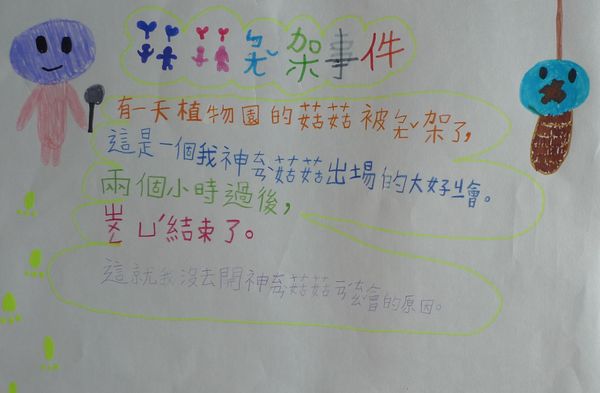 ㄅㄤˇ架事件
有一天植物園的菇菇被ㄅㄤˇ架了,
這是一個我神奇菇菇出場的大好ㄐㄧ會。
兩個小時過後,
結束了。
這就我沒去開神奇菇菇會的原因。